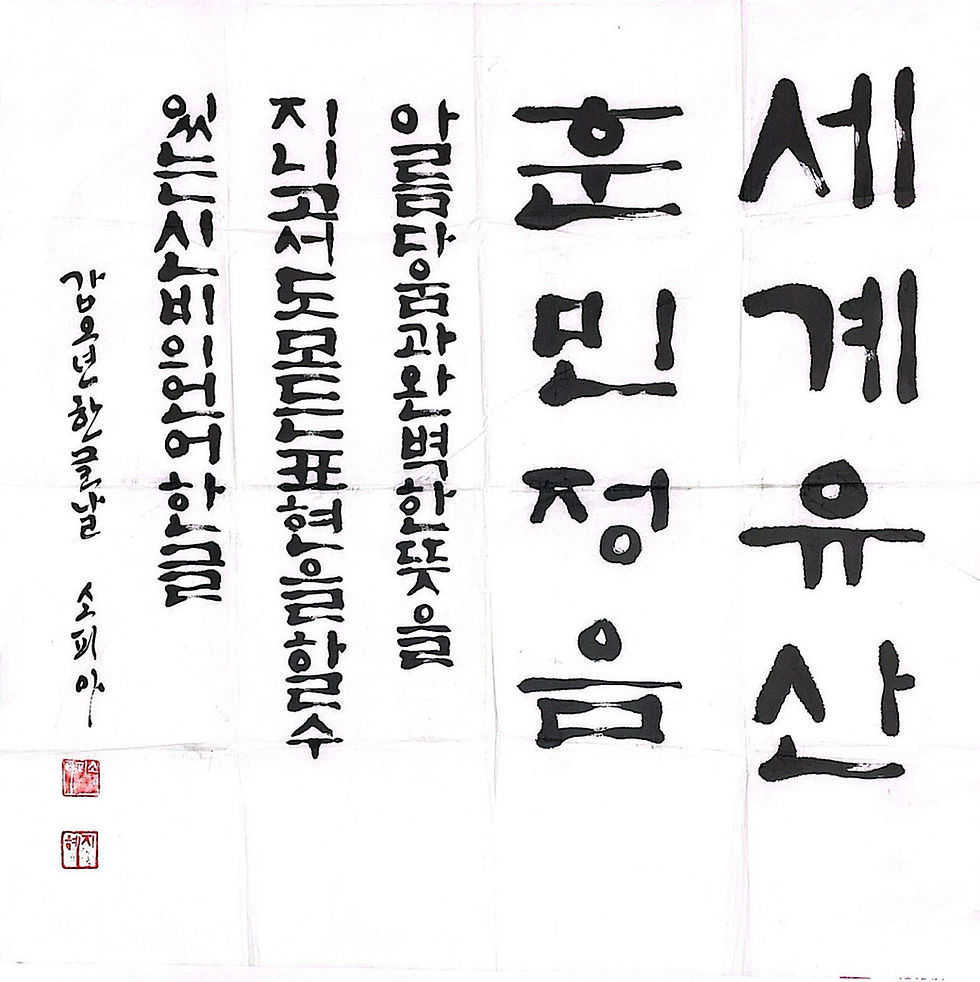 세계유산
훈민정음
아름다움과완벽한뜻을
지니고서도모든표현을할수
있는신비의언어한글
갑오년한글날 소피아